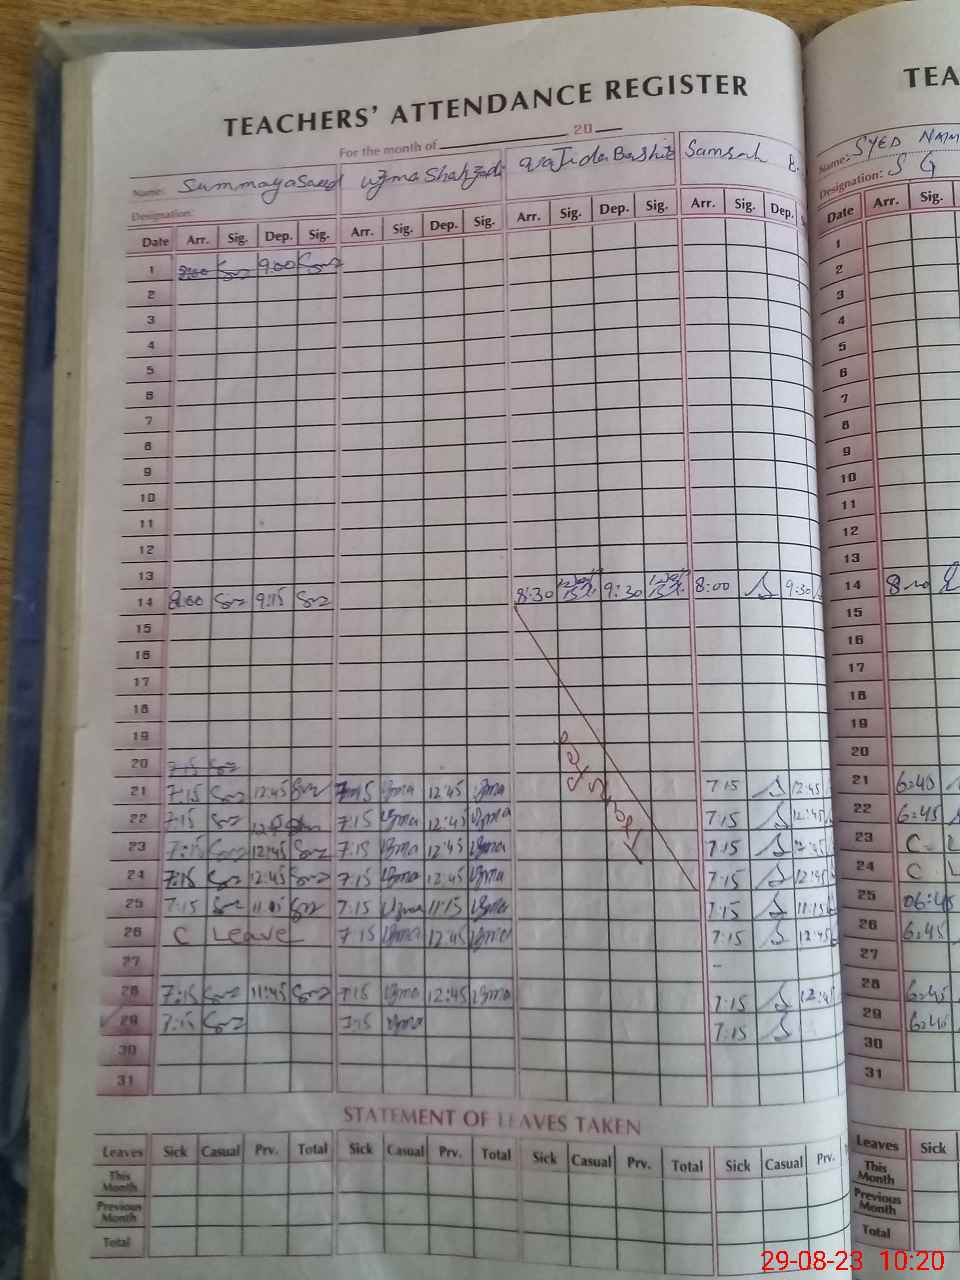 TEACHERS' ATTENDANCE REGISTER TEA
For the month of 20
Name: Summaya Saeed Uzma Shahzadi Wajida Bashir Samrah B. Name: SYED
Designation: Designation: S G
Date Arr. Sig. Dep. Sig. Arr. Sig. Dep. Sig. Arr. Sig. Dep. Sig. Arr. Sig. Dep. Date Arr. Sig.
1 8:00 9:00 1
2 2
3 3
4 4
5 5
6 6
7 7
8 8
9 9
10 10
11 11
12 12
13 13
14 8:00 9:15 8:30 9:30 8:00 9:30 14
15 15
16 16
17 17
18 18
19 19
20 7:15 20
21 7:15 12:45 7:15 Uzma 12:45 Uzma 7:15 12:45 21 6:40
22 7:15 7:15 Uzma 12:45 Uzma 7:15 12:45 22 6:45
23 7:15 12:45 7:15 Uzma 12:45 Uzma 7:15 12:45 23 C L
24 7:15 12:45 7:15 Uzma 12:45 Uzma 7:15 12:45 24 C L
25 7:15 7:15 Uzma 11:15 Uzma 7:15 11:15 25 06:45
26 C Leave 7:15 Uzma 12:45 Uzma 7:15 12:45 26 6:45
27 27
28 7:15 11:45 7:15 Uzma 12:45 Uzma 7:15 12:45 28 6:45
29 7:15 7:15 Uzma 7:15 29 6:40
30 30
31 31
STATEMENT OF LEAVES TAKEN
Leaves Sick Casual Prv. Total Sick Casual Prv. Total Sick Casual Prv. Total Sick Casual Prv. Leaves Sick
This Month This Month
Previous Month Previous Month
Total Total
29-08-23 10:20